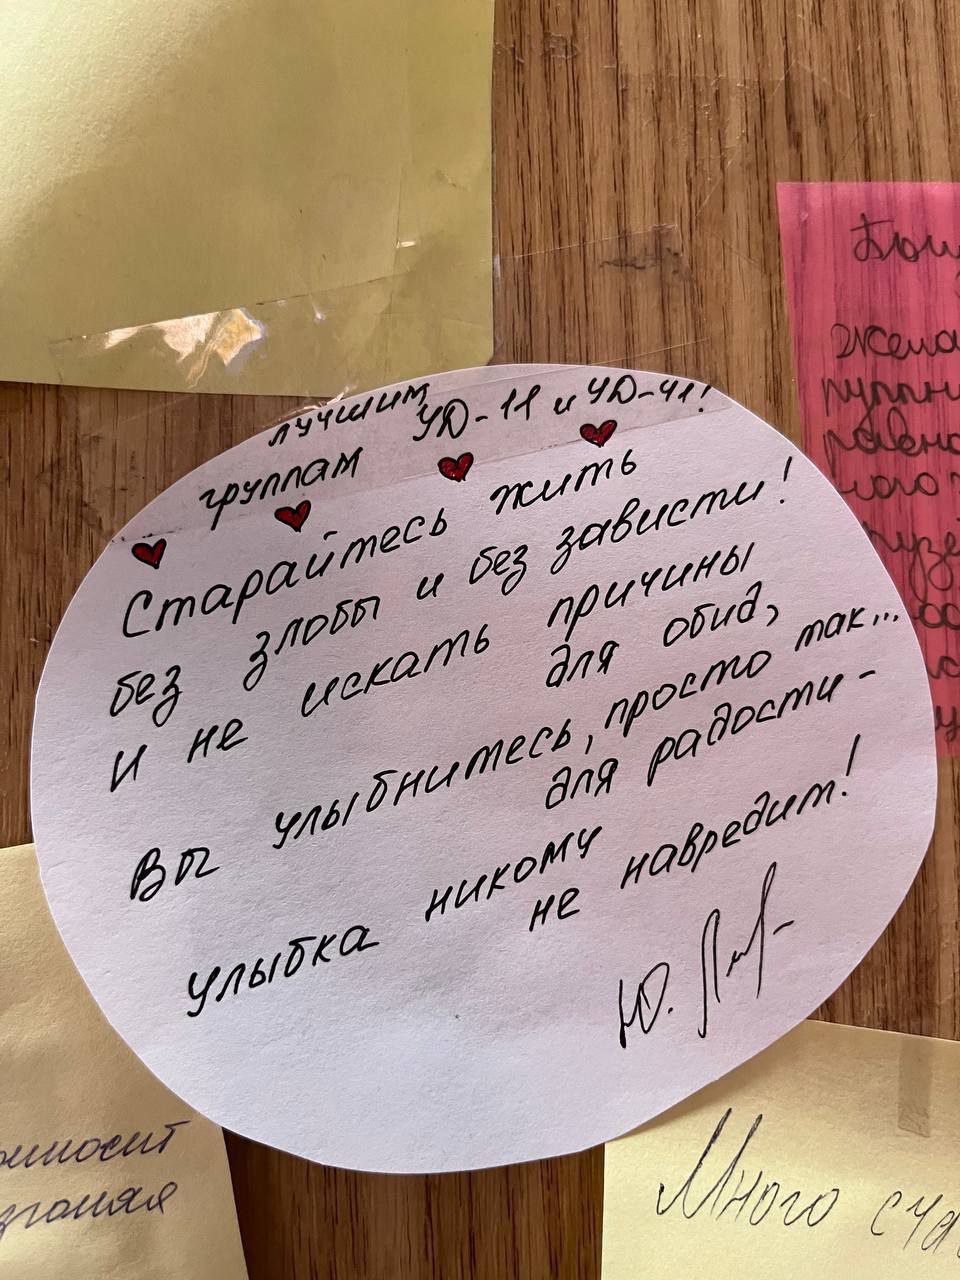 лучшим
группам УД-11 и УД-41!
Старайтесь жить
без злобы и без зависти!
И не искать причины
для обид,
Вы улыбнитесь, просто так...
для радости -
улыбка никому
не навредит!
Ю.
Жела
равно
ного
приносит
Много сча